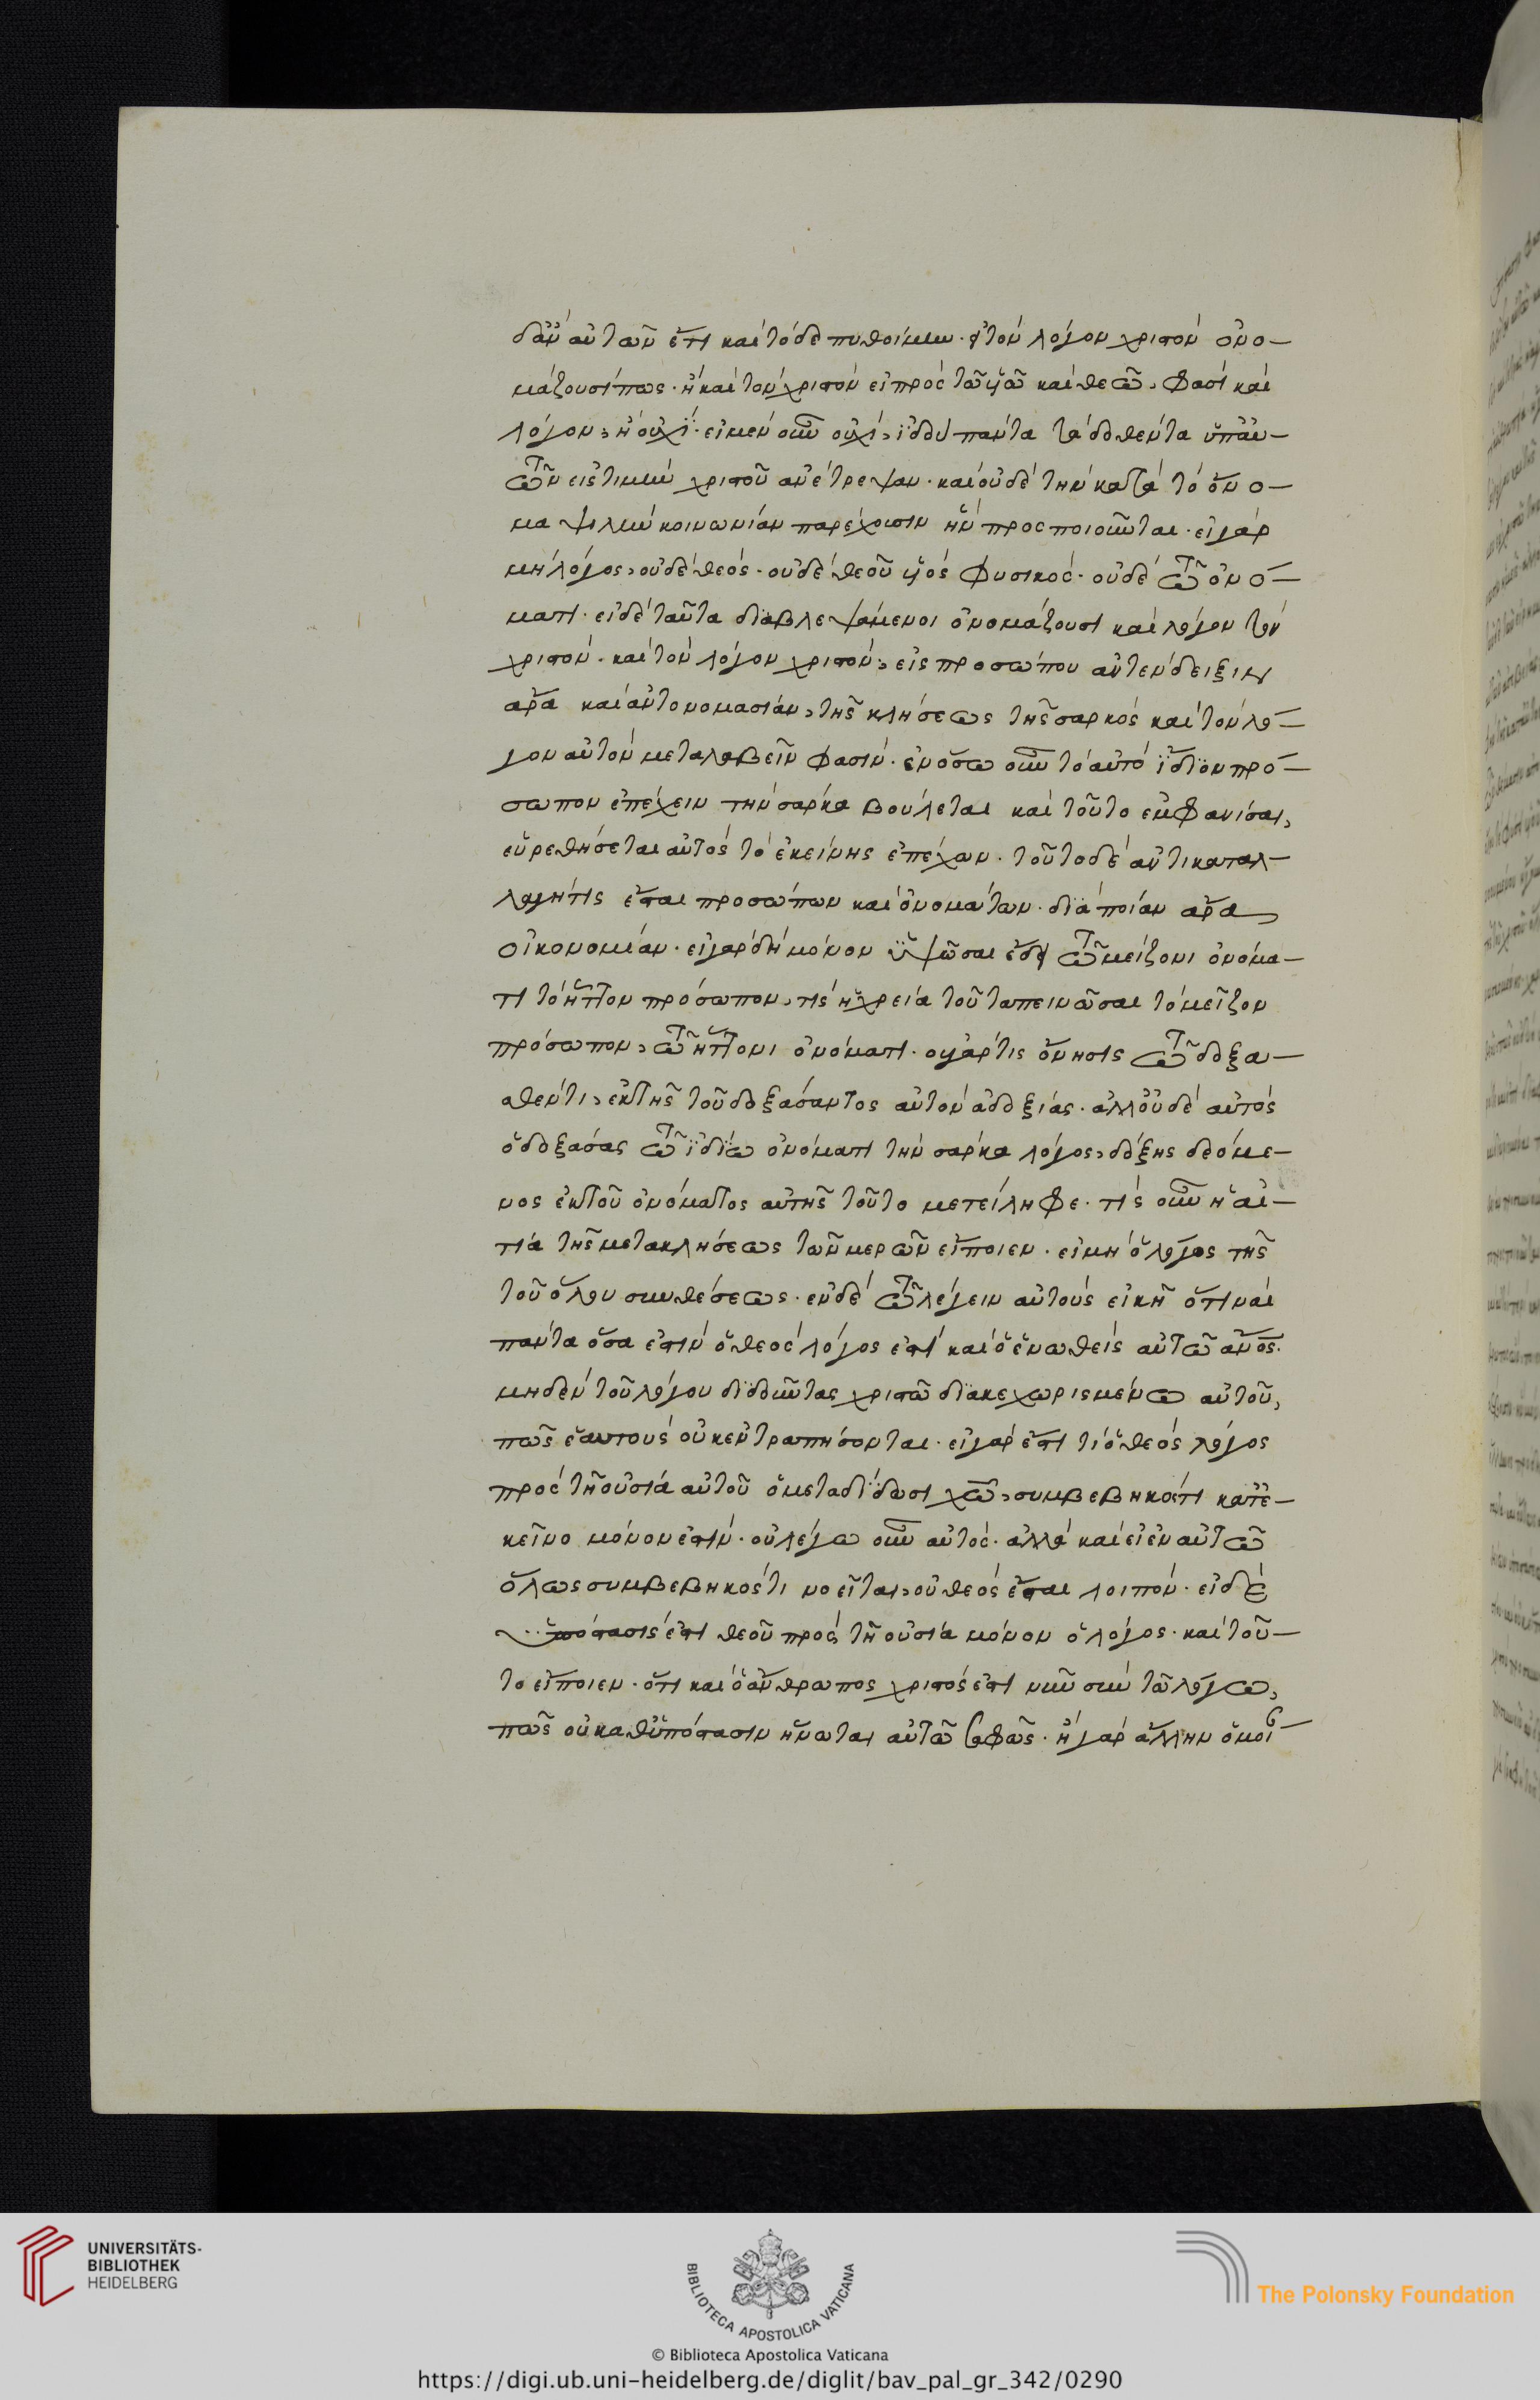 δ' ἂν αὐτῶν ἔτι καὶ τόδε πυθοίμην. εἰ τὸν λόγον χριστὸν ὀνο-
μάζουσί πως. ἢ καὶ τὸν χριστὸν εἰ πρὸς τῶ υἱῶ καὶ θεῶ, φασὶ καὶ
λόγον, ἢ οὐχί. εἰ μὲν οὖν οὐχὶ, ἰδοὺ πάντα τὰ δοθέντα ὑπ' αὐ-
τῶν εἰς τιμὴν χριστοῦ ἀνέτρεψαν. καὶ οὐδὲ τὴν κατὰ τὸ ὄνο-
μα ψιλὴν κοινωνίαν παρέχουσιν ἣν προσποιοῦνται. εἰ γὰρ
μὴ λόγος, οὐδὲ θεός. οὐδὲ θεοῦ υἱὸς φυσικός. οὐδὲ τῶ ὀνό-
ματι. εἰ δὲ ταῦτα διαβλεψάμενοι ὀνομάζουσι καὶ λόγον τὸν
χριστὸν. καὶ τὸν λόγον χριστὸν, εἰς προσώπου ἀντένδειξιν
ἄρα καὶ ἀντονομασίαν, τῆς κλήσεως τῆς σαρκὸς καὶ τὸν λό-
γον αὐτὸν μεταλαβεῖν φασίν. ἐν ὅσω οὖν τὸ αὐτὸ ἴδιον πρό-
σωπον ἐπέχειν τὴν σάρκα βούλεται καὶ τοῦτο ἐμφανίσαι,
εὑρεθήσεται αὐτὸς τὸ ἐκείνης ἐπέχων. τοῦτο δὲ ἀντικαταλ-
λαγή τις ἔσται προσώπων καὶ ὀνομάτων. διὰ ποίαν ἄρα
οἰκονομίαν. εἰ γὰρ δὴ μόνον ὑψῶσαι ἔδει τῶ μείζονι ὀνόμα-
τι τὸ ἧττον πρόσωπον, τίς ἡ χρεία τοῦ ταπεινῶσαι τὸ μεῖζον
πρόσωπον, τῶ ἥττονι ὀνόματι. οὐ γάρ τις ὄνησις τῶ δοξα-
σθέντι, ἐκ τῆς τοῦ δοξάσαντος αὐτὸν ἀδοξίας. ἀλλ' οὐδὲ αὐτὸς
ὁ δοξάσας τῶ ἰδίω ὀνόματι τὴν σάρκα λόγος, δόξης δεόμε-
νος ἐκ τοῦ ὀνόματος αὐτῆς τοῦτο μετείληφε. τίς οὖν ἡ αἰ-
τία τῆς μετακλήσεως τῶν μερῶν εἴποιεν. εἰ μὴ ὁ λόγος τῆς
τοῦ ὅλου συνθέσεως. ἐν δὲ τῶ λέγειν αὐτοὺς εἰκῆ ὅτι ναὶ
πάντα ὅσα ἐστὶν ὁ θεὸς λόγος ἐστὶ καὶ ὁ ἑνωθεὶς αὐτῶ ἄνος.
μηδὲν τοῦ λόγου διδόντας χριστῶ διακεχωρισμένω αὐτοῦ,
πῶς ἑαυτοὺς οὐκ ἐντραπήσονται. εἰ γὰρ ἔστι τι ὁ θεὸς λόγος
πρὸς τῆ οὐσία αὐτοῦ ὃ μεταδίδωσι χῶ, συμβεβηκότι κατ' ἐ-
κεῖνο μόνον ἐστίν. οὐ λέγω οὖν αὐτός. ἀλλὰ καὶ εἰ ἐν αὐτῶ
ὅλως συμβεβηκός τι νοεῖται, οὐ θεὸς ἔσται λοιπόν. εἰ δὲ
ὑπόστασίς ἐστι θεοῦ πρὸς τῆ οὐσία μόνον ὁ λόγος. καὶ τοῦ-
το εἴποιεν. ὅτι καὶ ὁ ἄνθρωπος χριστός ἐστι νῦν σὺν τῶ λόγω,
πῶς οὐ καθ' ὑπόστασιν ἥνωται αὐτῶ σαφῶς. ἢ γὰρ ἄλλην ὁμοί
UNIVERSITÄTS-
BIBLIOTHEK
HEIDELBERG
BIBLIOTECA APOSTOLICA VATICANA
The Polonsky Foundation
© Biblioteca Apostolica Vaticana
https://digi.ub.uni-heidelberg.de/diglit/bav_pal_gr_342/0290